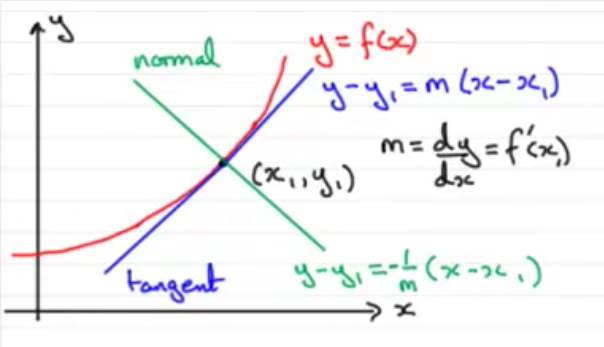 y
normal
y = f(x)
y - y₁ = m (x - x₁)
m = dy/dx = f'(x₁)
(x₁, y₁)
tangent
y - y₁ = -1/m (x - x₁)
x